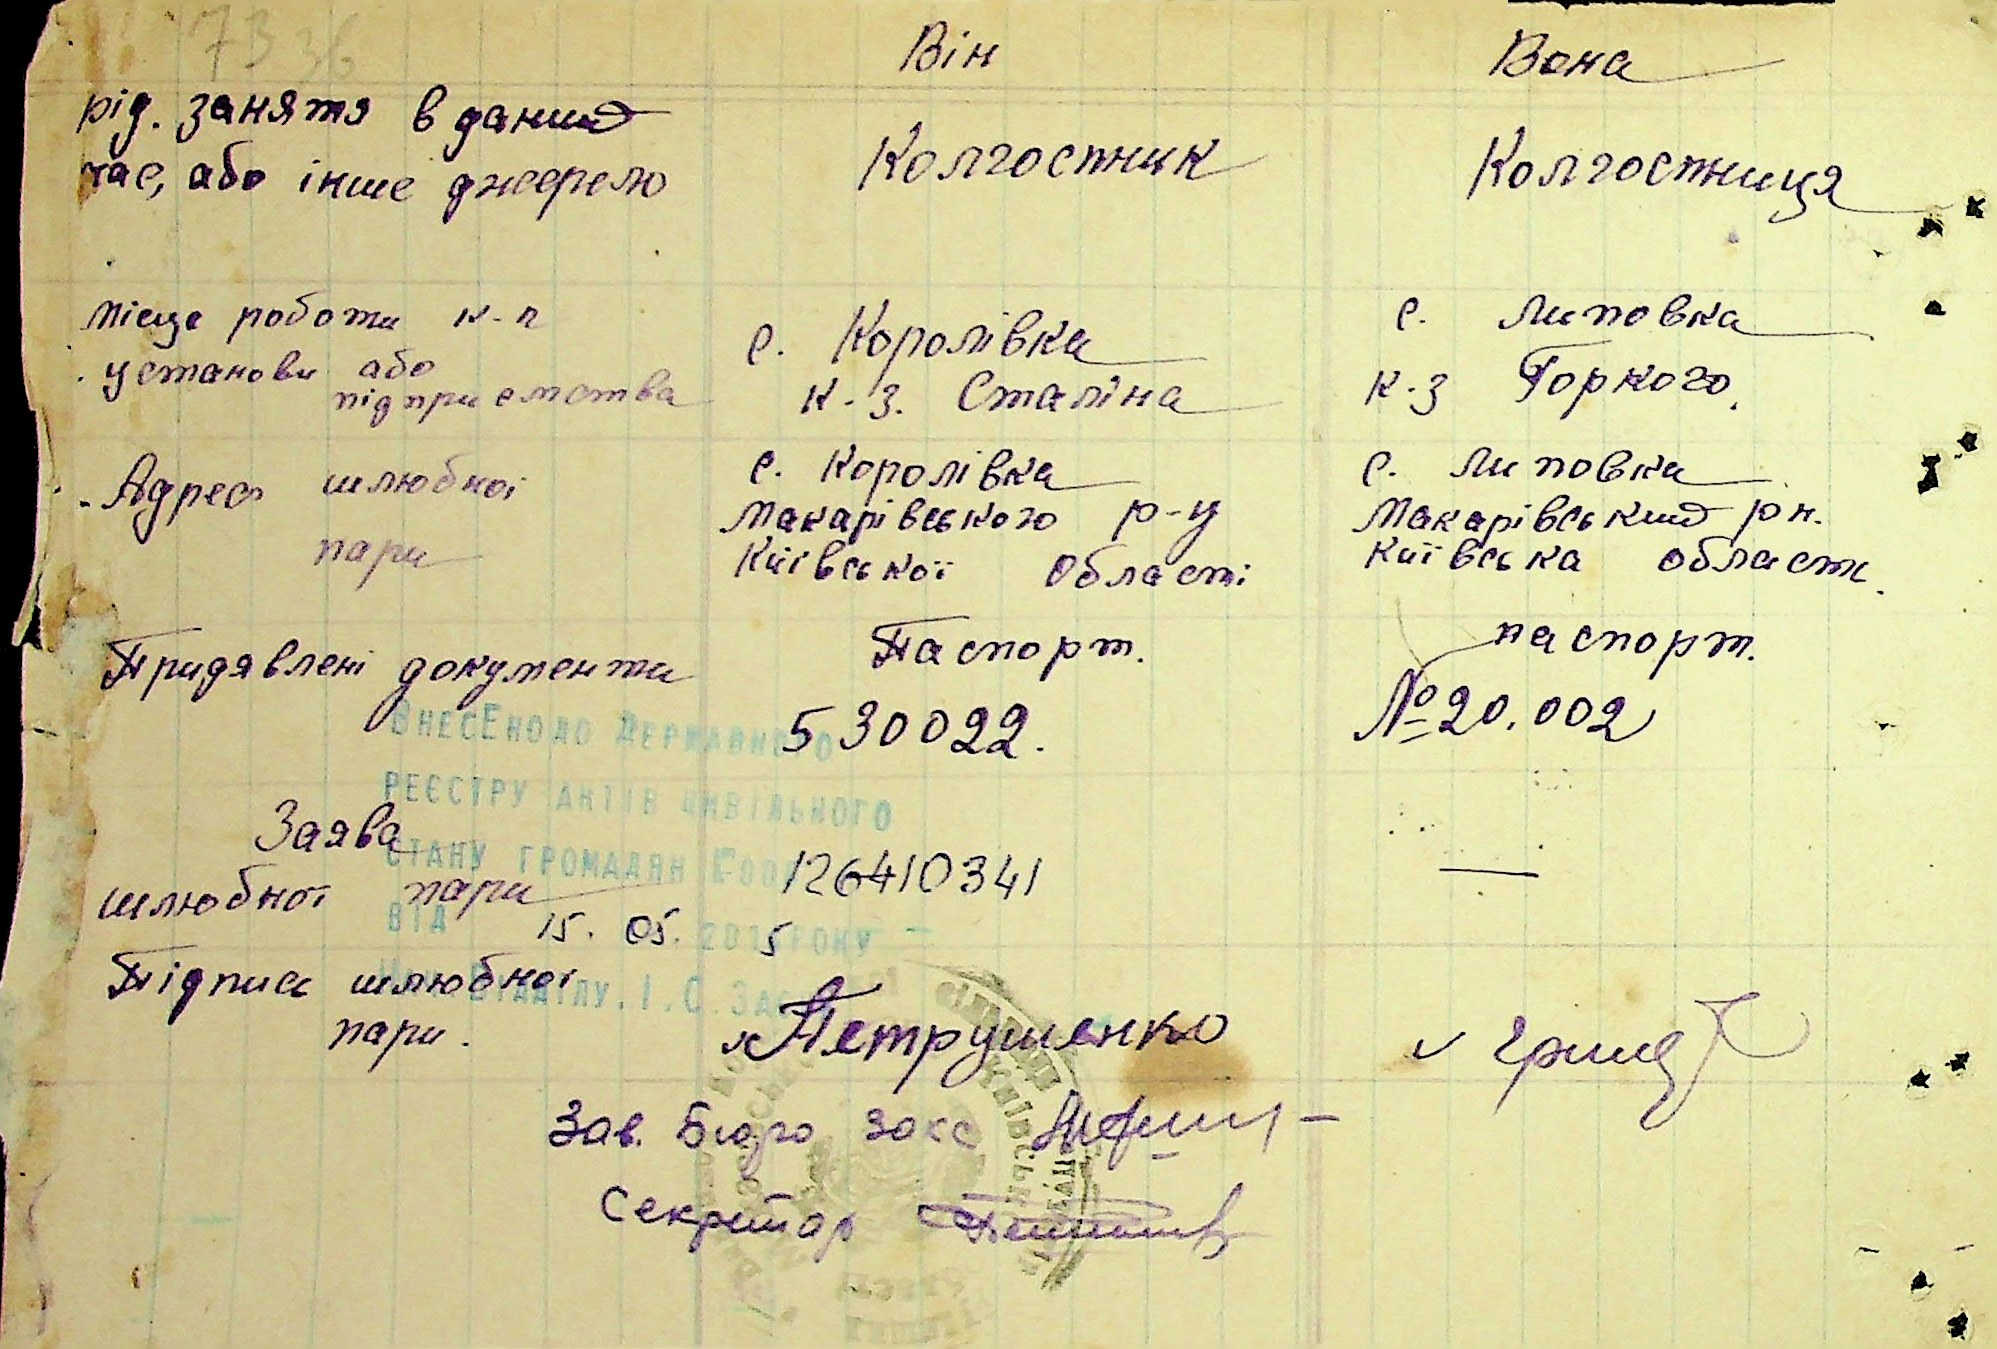 7336
Він Вона
рід. заняття в даний
час, або інше джерело Колгостник Колгостниця
Місце роботи к-п с. Королівка с. Липовка
установи або підприємства к-з. Сталіна к-з Горкого.
Адрес шлюбної с. Королівка с. Липовка
пари Макарівського р-у Макарівський рн.
Київської області Київська області.
Придявлені документи Паспорт. паспорт.
530022. № 20.002
Внесено до Державного
реєстру актів цивільного
стану громадян
Заява
шлюбної пари 126410341 —
від 15. 05. 2015 року
Підпис шлюбної Петрушенко Гриц
пари.
Зав. Бюро Закс
Секретар